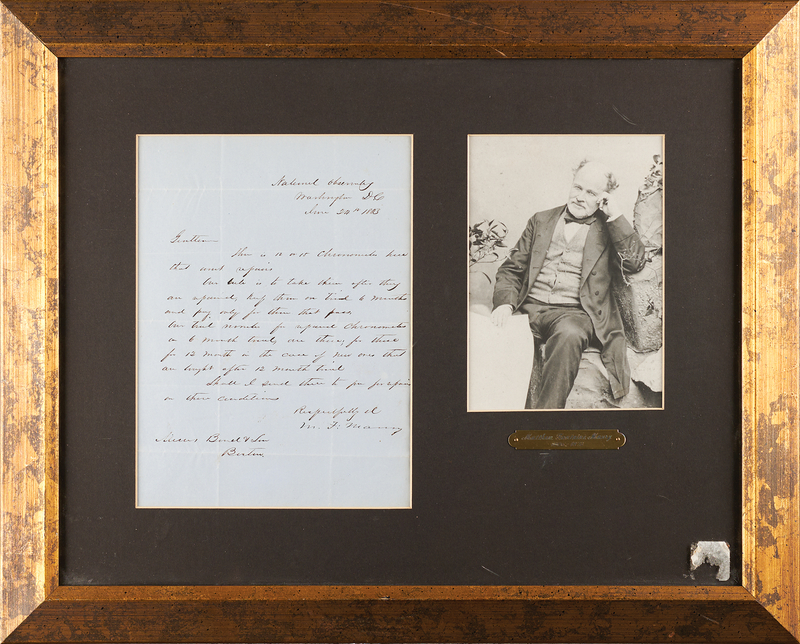 National Observatory
Washington D.C.
June 24th 18
Gentlemen
There is 10 or 15 Chronometers here
that want repairs
Our rule is to take them after they
are repaired, keep them on trial 6 months
and pay only for those that pass
Our number for repaired Chronometers
on 6 month trial, are three, for those
for 12 month in the case of new ones that
are bought after 12 month trial
Shall I send these to you for repair
on these conditions
Respectfully &
M. F. Maury
Messrs Bond & Son
Boston
Matthew Fontaine Maury